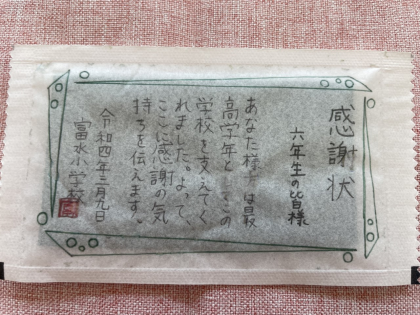 感謝状
六年生の皆様
あなた様方は最
高学年としてこの
学校を支えてく
れました。よって、
ここに感謝の気
持ちを伝えます。
令和四年三月九日
富水小学校